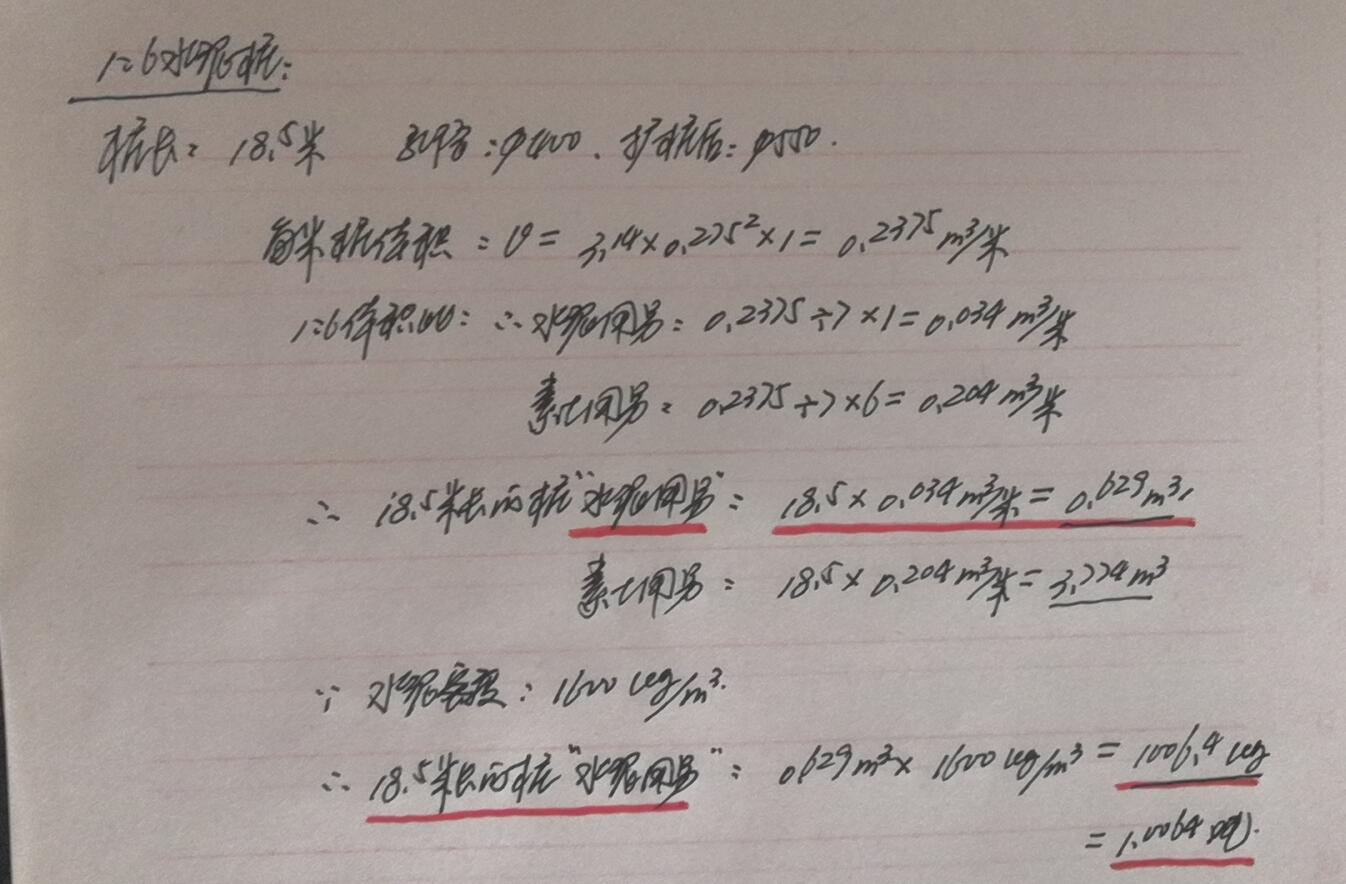 1:6水泥桩:
桩长: 18.5米 孔径:φ400、扩桩后:φ550.
每米桩体积:V= 3.14×0.275²×1= 0.2375m³/米
1:6体积比: ∴水泥用量: 0.2375÷7×1=0.034m³/米
素土用量: 0.2375÷7×6=0.204m³/米
∴ 18.5米长的桩"水泥用量": 18.5×0.034m³/米=0.629m³,
素土用量: 18.5×0.204m³/米=3.774m³
∵ 水泥密度: 1600kg/m³.
∴ 18.5米长的桩"水泥用量": 0.629m³× 1600kg/m³ = 1006.4kg
= 1.0064吨.